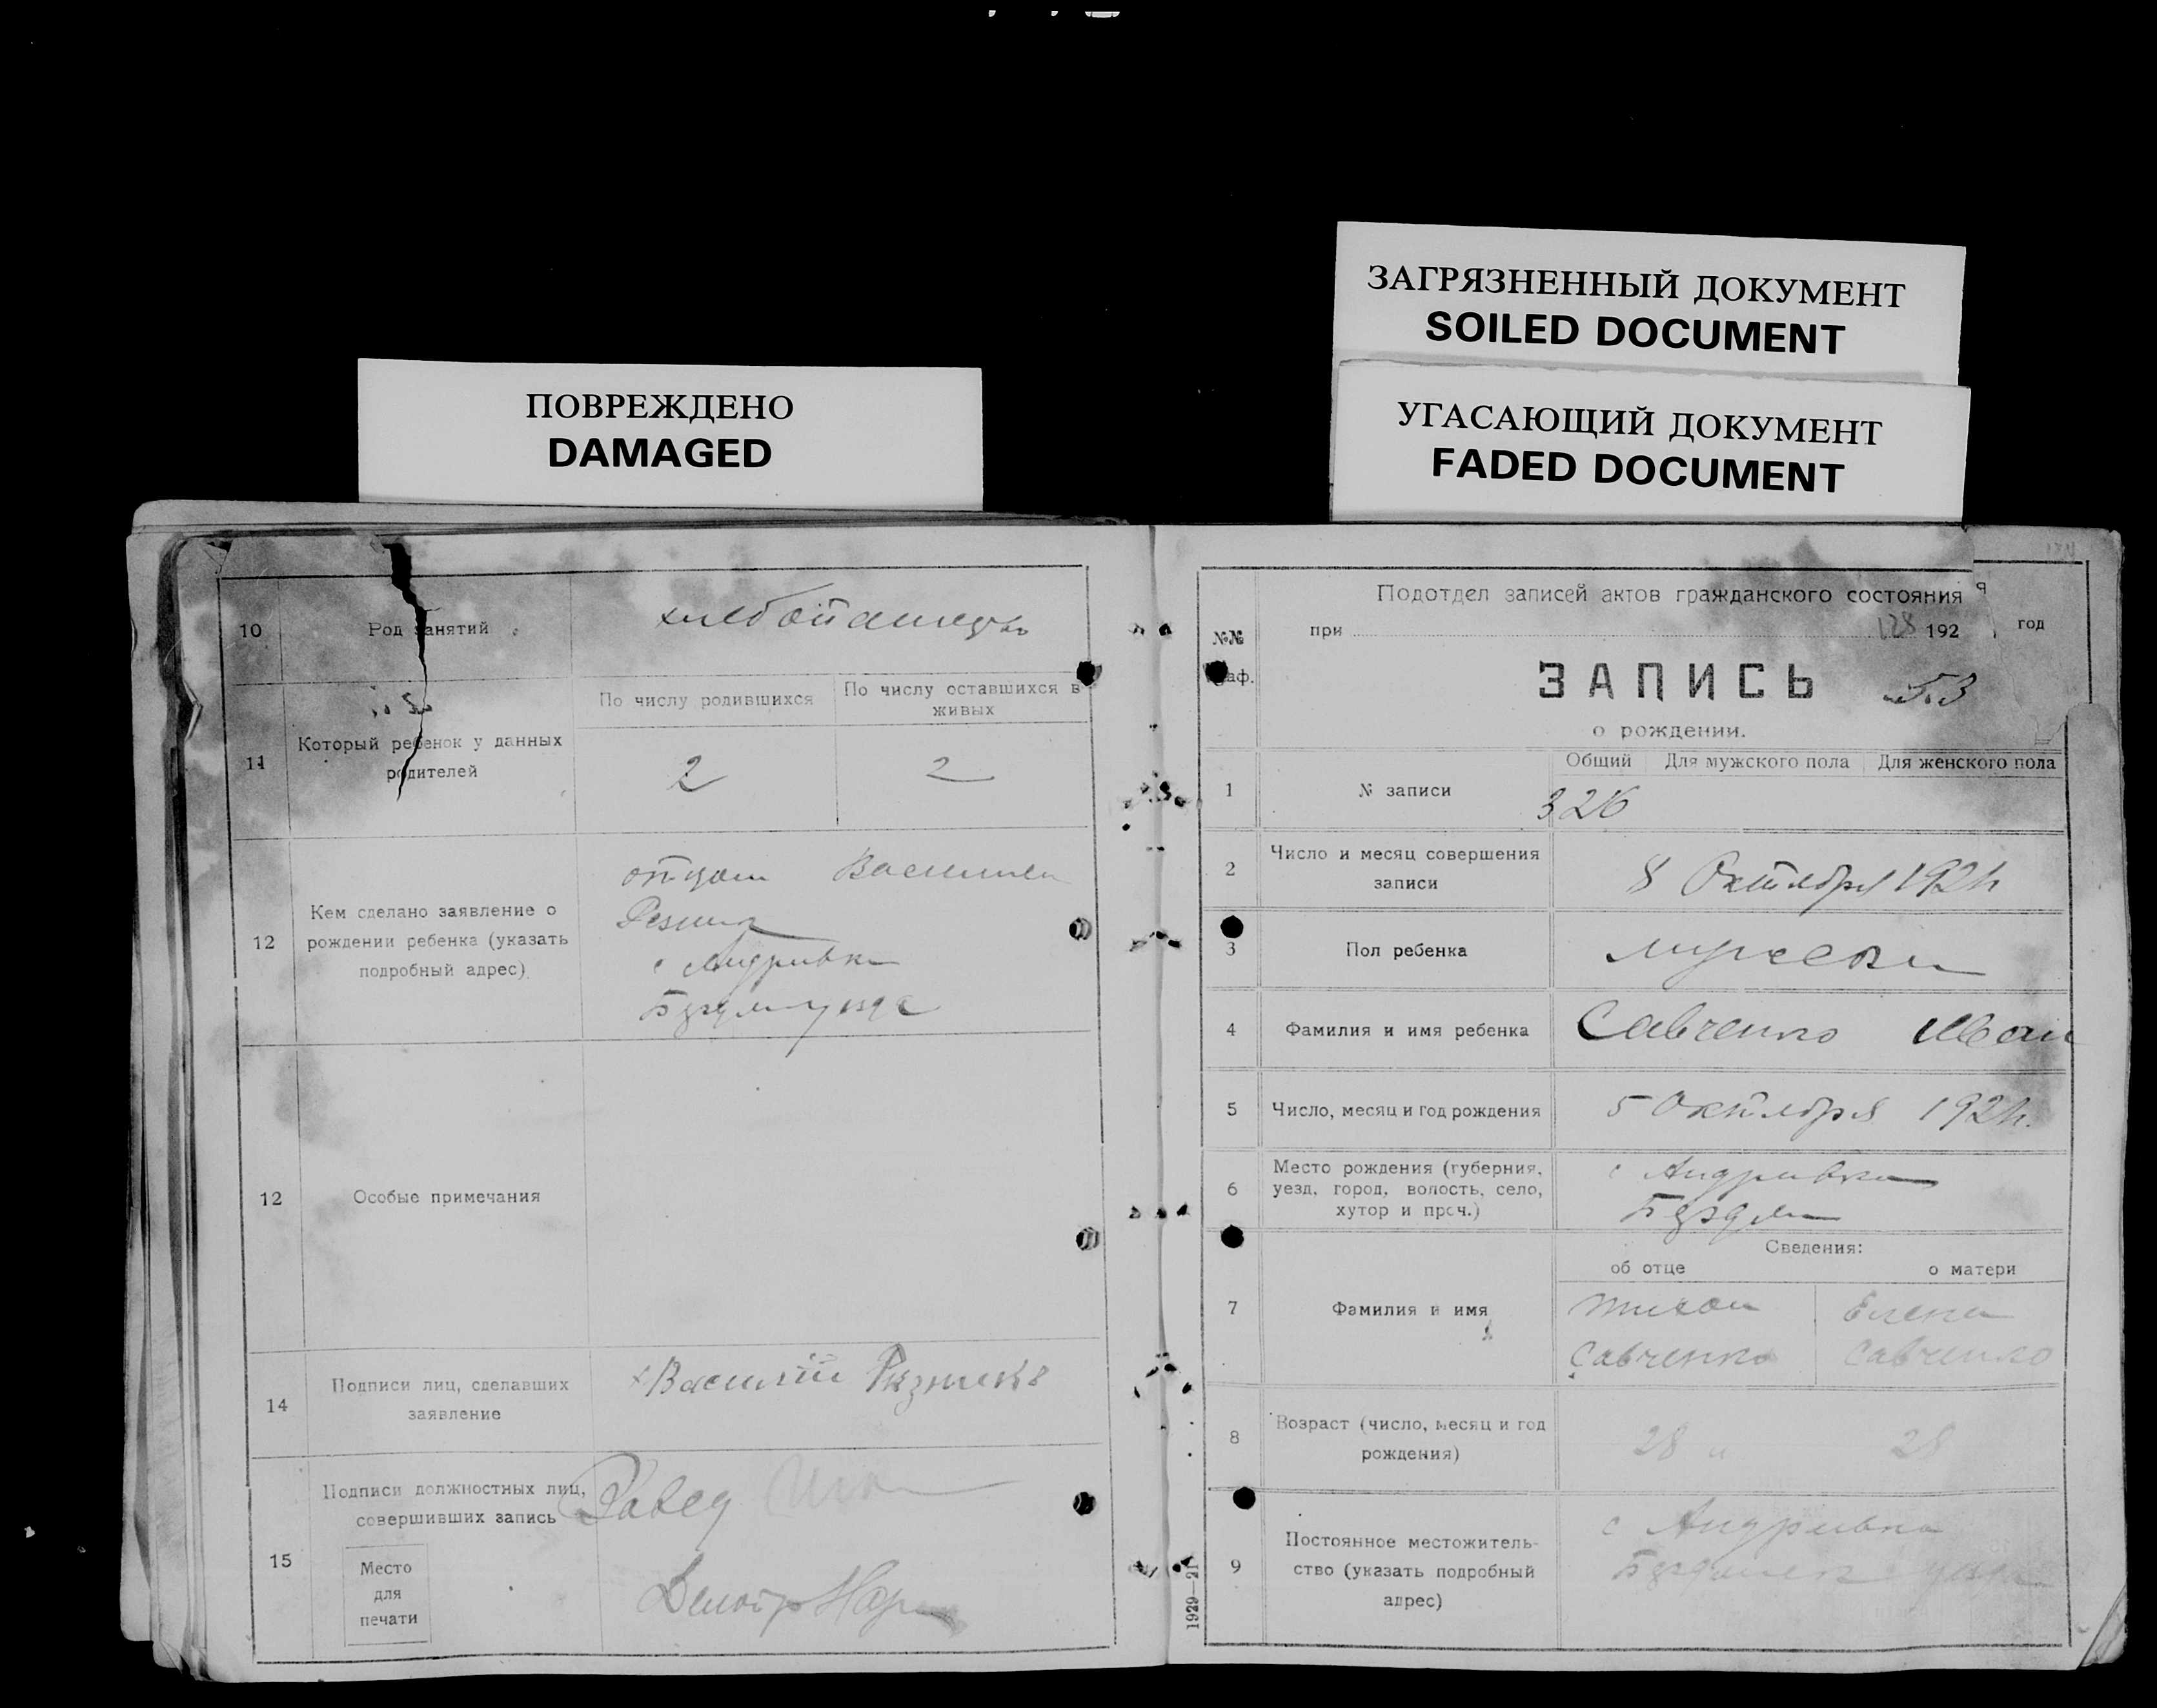 ПОВРЕЖДЕНО
DAMAGED
ЗАГРЯЗНЕННЫЙ ДОКУМЕНТ
SOILED DOCUMENT
УГАСАЮЩИЙ ДОКУМЕНТ
FADED DOCUMENT
10
Род занятий
11
Который ребенок у данных
родителей
По числу родившихся
По числу оставшихся в
живых
2
2
12
Кем сделано заявление о
рождении ребенка (указать
подробный адрес)
отцом
с Андривки
12
Особые примечания
14
Подписи лиц, сделавших
заявление
Василий
15
Подписи должностных лиц,
совершивших запись
Место
для
печати
Подотдел записей актов гражданского состояния
№№
граф.
при
128 192
год
ЗАПИСЬ
53
о рождении.
Общий
Для мужского пола
Для женского пола
1
№ записи
326
2
Число и месяц совершения
записи
8 Октября
3
Пол ребенка
4
Фамилия и имя ребенка
Савченко Иван
5
Число, месяц и год рождения
5 Октября
6
Место рождения (губерния,
уезд, город, волость, село,
хутор и проч.)
с Андривки
Сведения:
об отце
о матери
7
Фамилия и имя
Тихон
Савченко
Елена
Савченко
8
Возраст (число, месяц и год
рождения)
28
28
9
Постоянное местожитель-
ство (указать подробный
адрес)
с Андривка
1929—21